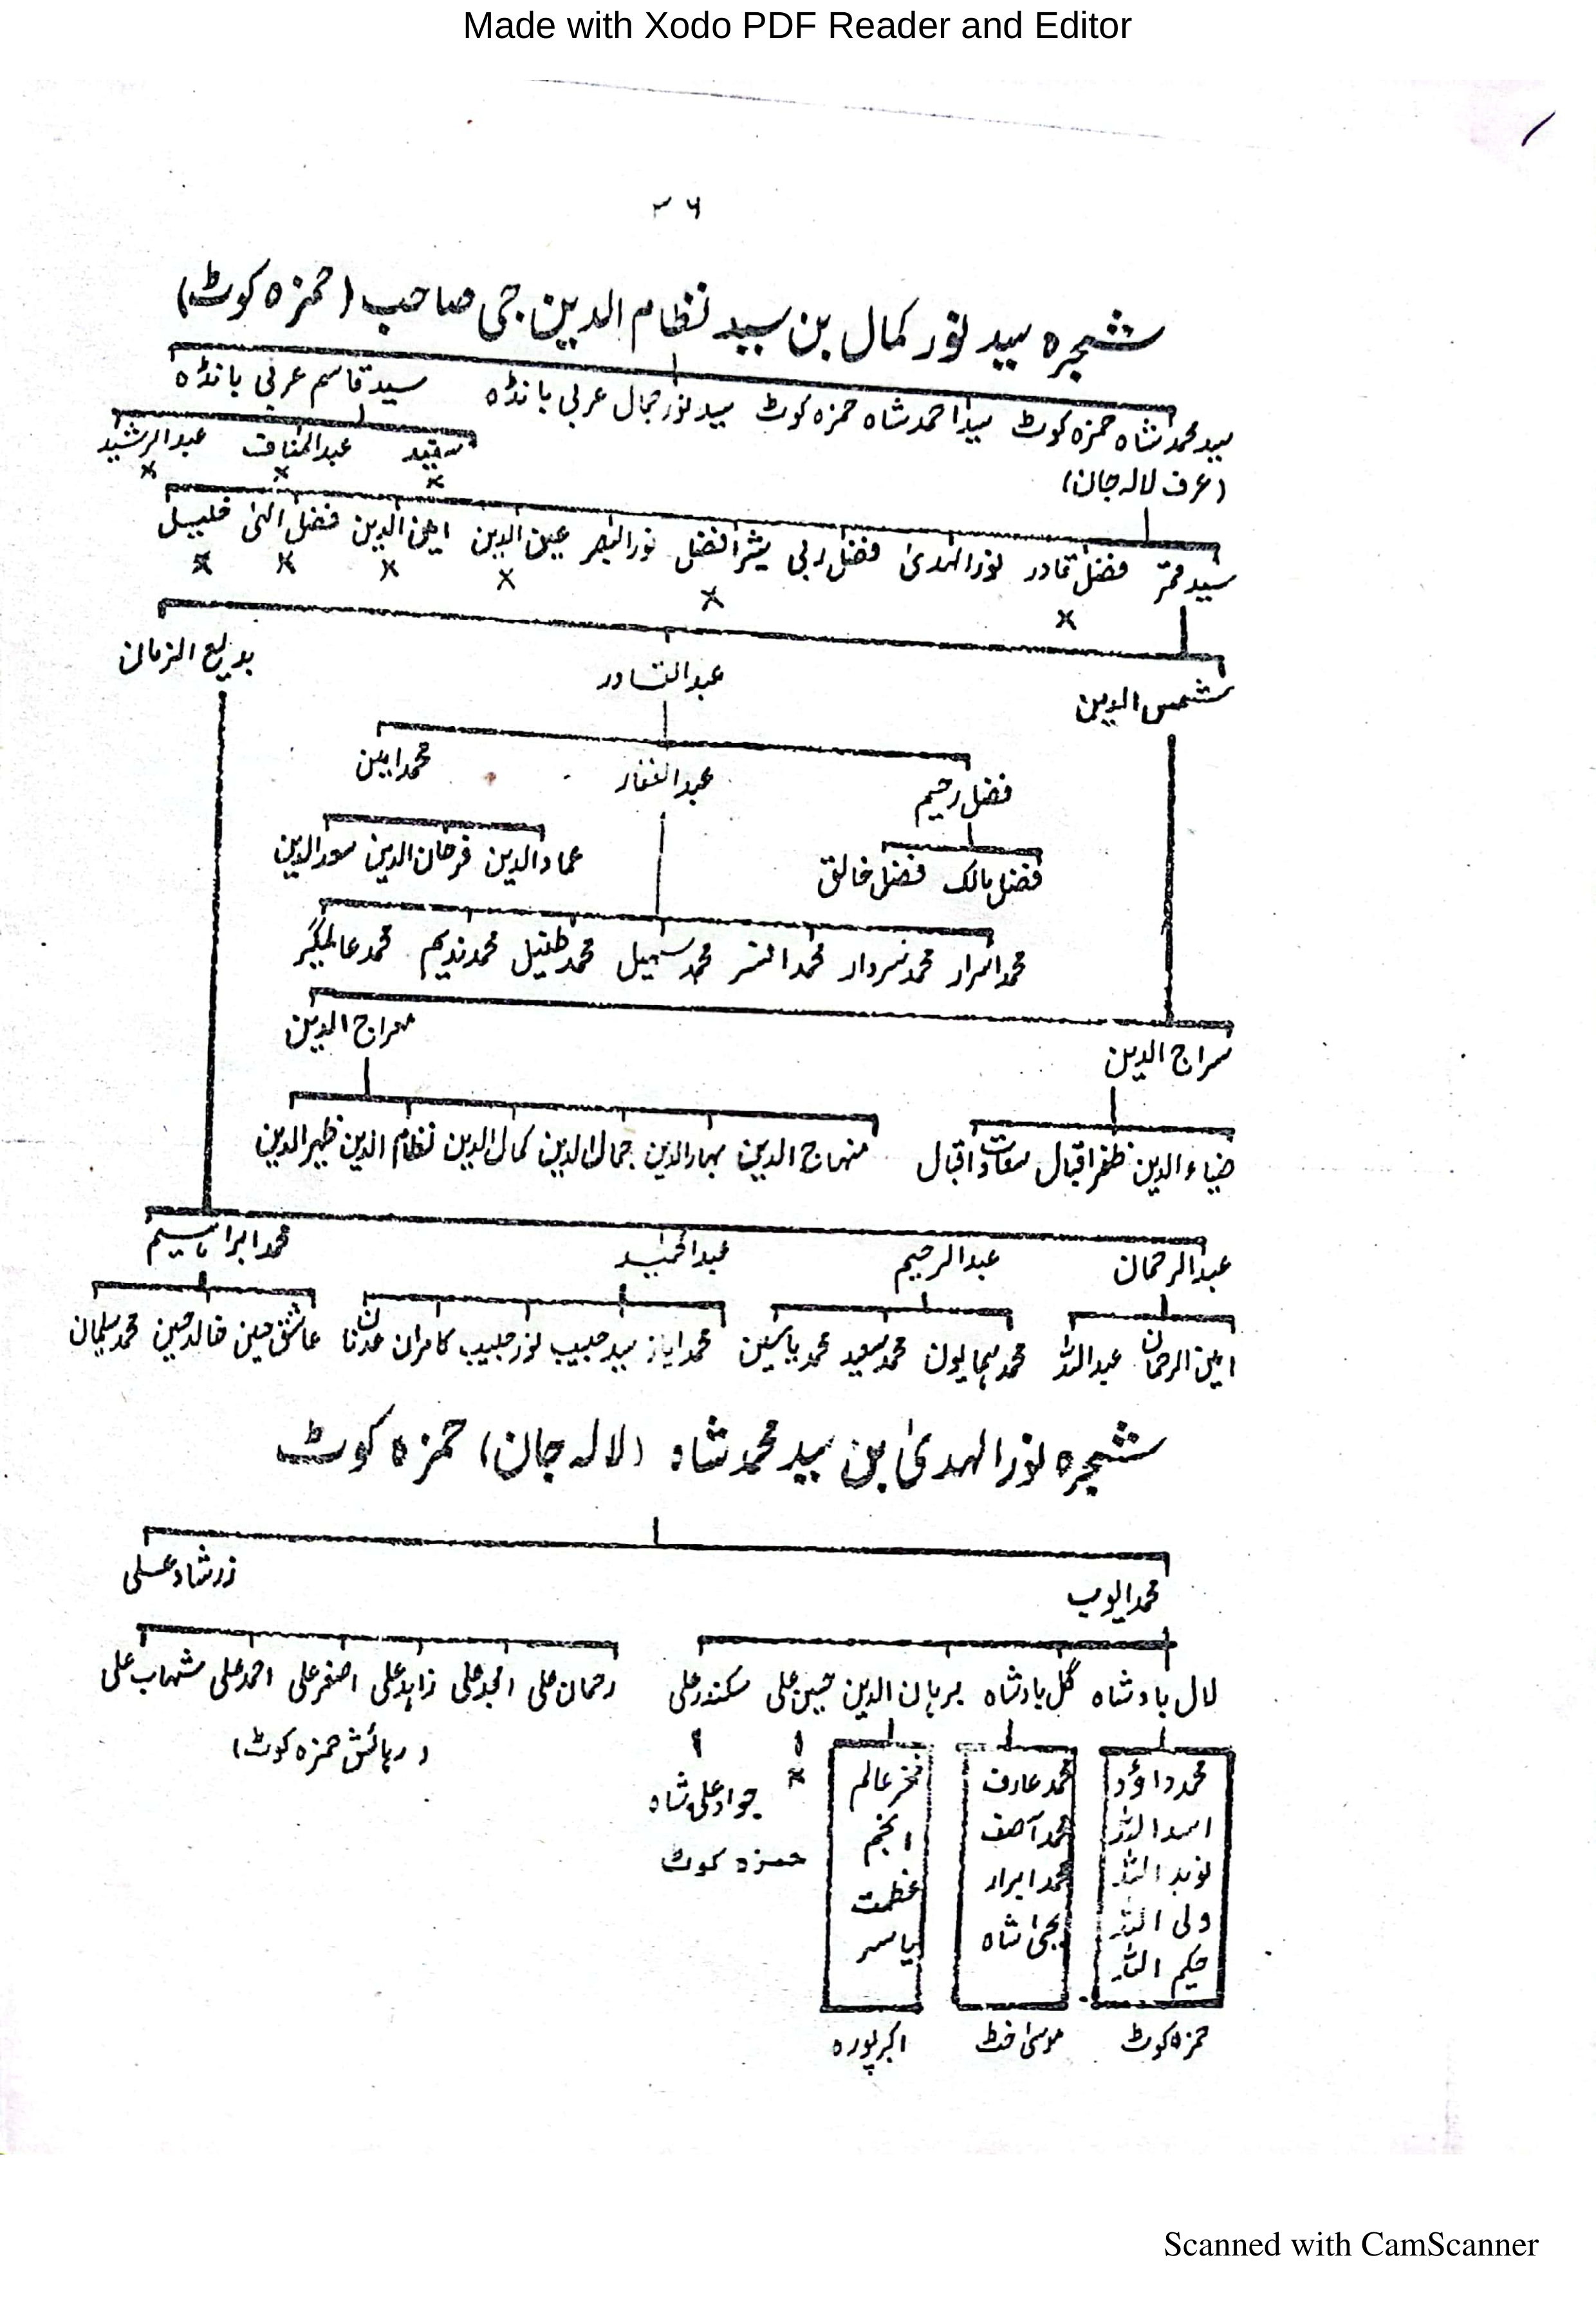 Made with Xodo PDF Reader and Editor
۲۶
شجرہ سید نور کمال بن سید نظام الدین جی صاحب (حمزہ کوٹ)
سید محمد شاہ حمزہ کوٹ سید احمد شاہ حمزہ کوٹ سید نور جمال عربی بانڈہ سید قاسم عربی بانڈہ
(عرف لالہ جان)
عبدالمناف عبدالرشید
سید قمر فضل قادر نور الہدیٰ فضل ربی بشر الفضل نور البصر عین الدین امین الدین فضل الٰہی خلیل
شمس الدین عبدالقادر بدیع الزمان
فضل رحیم عبدالغفار محمد امین
فضل مالک فضل خالق عماد الدین فرحان الدین سعد الدین
محمد اسرار محمد سردار محمد افسر محمد سہیل محمد طفیل محمد ندیم محمد عالمگیر
سراج الدین معراج الدین
ضیاء الدین ظفر اقبال سعادت اقبال منہاج الدین بہار الدین جمال الدین کمال الدین نظام الدین ظہیر الدین
عبدالرحمان عبدالرحیم عبدالحمید محمد ابراہیم
امین الرحمان عبداللہ محمد ہمایون محمد سعید محمد یاسین محمد ایاز سید حبیب نور حبیب کامران عدنان عاشق حسین خالد حسین محمد سلیمان
شجرہ نور الہدیٰ بن سید محمد شاہ (لالہ جان) حمزہ کوٹ
محمد ایوب زرشاد علی
لال بادشاہ گل بادشاہ برہان الدین حسین علی سکندر علی رحمان علی امجد علی زاہد علی اصغر علی احمد علی شہاب علی
(رہائش حمزہ کوٹ)
جواد علی شاہ
حمزہ کوٹ
محمد داؤد محمد عارف فخر عالم
اسد اللہ محمد آصف انجم
نوید اللہ محمد ابرار عظمت
ولی اللہ یحیٰ شاہ یاسر
حکیم اللہ
حمزہ کوٹ موسیٰ خٹ اکبر پورہ
Scanned with CamScanner